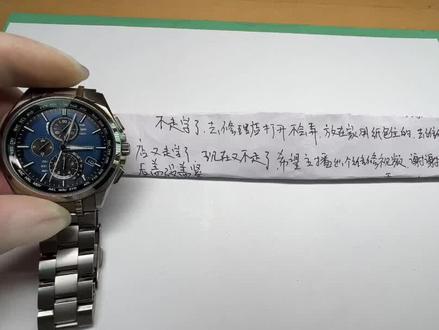 不走字了.去修理店打开检弄.放在家用纸包住的.去修
店又走字了.现在又不走了.希望主播做个维修视频.谢谢
后盖没盖紧